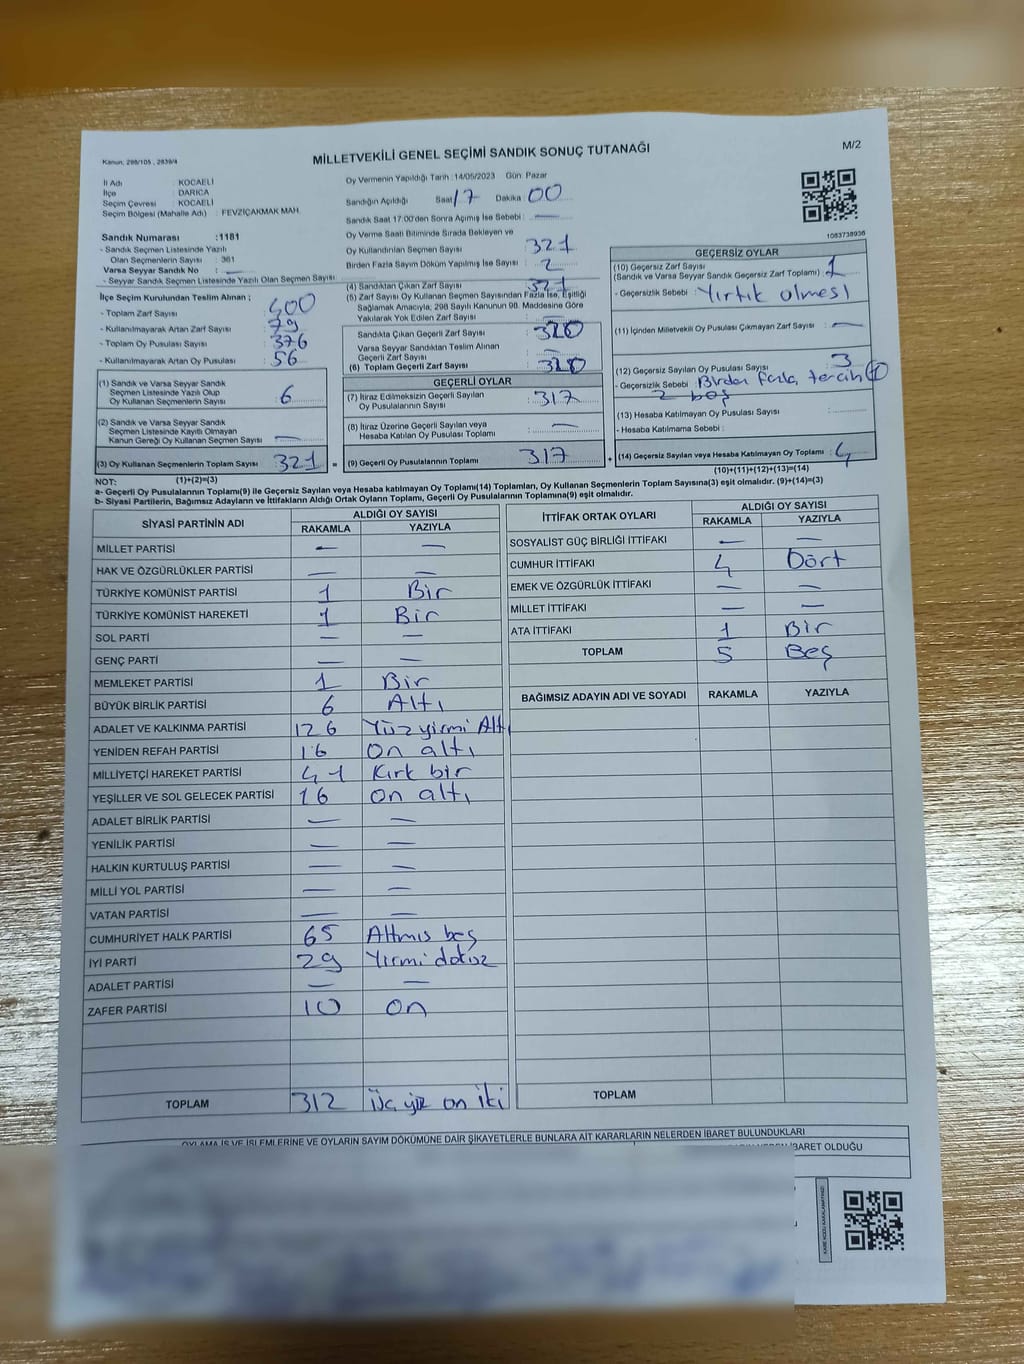 Kanun, 298/105 , 2839/4
MİLLETVEKİLİ GENEL SEÇİMİ SANDIK SONUÇ TUTANAĞI
M/2
İl Adı : KOCAELİ
İlçe : DARICA
Seçim Çevresi : KOCAELİ
Seçim Bölgesi (Mahalle Adı) : FEVZİÇAKMAK MAH.
Oy Vermenin Yapıldığı Tarih : 14/05/2023 Gün: Pazar
Sandığın Açıldığı Saat 17 Dakika 00
Sandık Saat 17:00'den Sonra Açmış İse Sebebi : —
Oy Verme Saati Bitiminde Sırada Bekleyen ve
Oy Kullandırılan Seçmen Sayısı 321
Birden Fazla Sayım Döküm Yapılmış İse Sayısı : 2
1083738936
Sandık Numarası :1181
- Sandık Seçmen Listesinde Yazılı
Olan Seçmenlerin Sayısı : 361
Varsa Seyyar Sandık No : —
- Seyyar Sandık Seçmen Listesinde Yazılı Olan Seçmen Sayısı
İlçe Seçim Kurulundan Teslim Alınan ;
- Toplam Zarf Sayısı : 400
- Kullanılmayarak Artan Zarf Sayısı : 79
- Toplam Oy Pusulası Sayısı : 376
- Kullanılmayarak Artan Oy Pusulası : 56
(1) Sandık ve Varsa Seyyar Sandık
Seçmen Listesinde Yazılı Olup
Oy Kullanan Seçmenlerin Sayısı : 6
(2) Sandık ve Varsa Seyyar Sandık
Seçmen Listesinde Kayıtlı Olmayan
Kanun Gereği Oy Kullanan Seçmen Sayısı : —
(3) Oy Kullanan Seçmenlerin Toplam Sayısı : 321
(1)+(2)=(3)
(4) Sandıktan Çıkan Zarf Sayısı : 321
(5) Zarf Sayısı Oy Kullanan Seçmen Sayısından Fazla İse, Eşitliği
Sağlamak Amacıyla; 298 Sayılı Kanunun 98. Maddesine Göre
Yakılarak Yok Edilen Zarf Sayısı :
Sandıkta Çıkan Geçerli Zarf Sayısı : 320
Varsa Seyyar Sandıktan Teslim Alınan
Geçerli Zarf Sayısı : —
(6) Toplam Geçerli Zarf Sayısı : 320
GEÇERLİ OYLAR
(7) İtiraz Edilmeksizin Geçerli Sayılan
Oy Pusulalarının Sayısı : 317
(8) İtiraz Üzerine Geçerli Sayılan veya
Hesaba Katılan Oy Pusulası Toplamı : —
= (9) Geçerli Oy Pusulalarının Toplamı : 317
GEÇERSİZ OYLAR
(10) Geçersiz Zarf Sayısı
(Sandık ve Varsa Seyyar Sandık Geçersiz Zarf Toplamı) : 1
- Geçersizlik Sebebi : Yırtık olması
(11) İçinden Milletvekili Oy Pusulası Çıkmayan Zarf Sayısı : —
(12) Geçersiz Sayılan Oy Pusulası Sayısı : 3
- Geçersizlik Sebebi : Birden fazla tercih 1
2 boş
(13) Hesaba Katılmayan Oy Pusulası Sayısı :
- Hesaba Katılmama Sebebi :
+ (14) Geçersiz Sayılan veya Hesaba Katılmayan Oy Toplamı : 4
(10)+(11)+(12)+(13)=(14)
NOT:
a- Geçerli Oy Pusulalarının Toplamı(9) ile Geçersiz Sayılan veya Hesaba Katılmayan Oy Toplamı(14) Toplamları, Oy Kullanan Seçmenlerin Toplam Sayısına(3) eşit olmalıdır. (9)+(14)=(3)
b- Siyasi Partilerin, Bağımsız Adayların ve İttifakların Aldığı Ortak Oyların Toplamı, Geçerli Oy Pusulalarının Toplamına(9) eşit olmalıdır.
SİYASİ PARTİNİN ADI ALDIĞI OY SAYISI
RAKAMLA YAZIYLA
MİLLET PARTİSİ — —
HAK VE ÖZGÜRLÜKLER PARTİSİ — —
TÜRKİYE KOMÜNİST PARTİSİ 1 Bir
TÜRKİYE KOMÜNİST HAREKETİ 1 Bir
SOL PARTİ — —
GENÇ PARTİ — —
MEMLEKET PARTİSİ 1 Bir
BÜYÜK BİRLİK PARTİSİ 6 Altı
ADALET VE KALKINMA PARTİSİ 126 Yüz yirmi Altı
YENİDEN REFAH PARTİSİ 16 On altı
MİLLİYETÇİ HAREKET PARTİSİ 41 Kırk bir
YEŞİLLER VE SOL GELECEK PARTİSİ 16 on altı
ADALET BİRLİK PARTİSİ — —
YENİLİK PARTİSİ — —
HALKIN KURTULUŞ PARTİSİ — —
MİLLİ YOL PARTİSİ — —
VATAN PARTİSİ — —
CUMHURİYET HALK PARTİSİ 65 Altmış beş
İYİ PARTİ 29 Yirmi dokuz
ADALET PARTİSİ — —
ZAFER PARTİSİ 10 on
TOPLAM 312 üç yüz on iki
İTTİFAK ORTAK OYLARI ALDIĞI OY SAYISI
RAKAMLA YAZIYLA
SOSYALİST GÜÇ BİRLİĞİ İTTİFAKI — —
CUMHUR İTTİFAKI 4 Dört
EMEK VE ÖZGÜRLÜK İTTİFAKI — —
MİLLET İTTİFAKI — —
ATA İTTİFAKI 1 Bir
TOPLAM 5 Beş
BAĞIMSIZ ADAYIN ADI VE SOYADI RAKAMLA YAZIYLA
TOPLAM
OYLAMA İŞ VE İŞLEMLERİNE VE OYLARIN SAYIM DÖKÜMÜNE DAİR ŞİKAYETLERLE BUNLARA AİT KARARLARIN NELERDEN İBARET BULUNDUKLARI
İBARET OLDUĞU